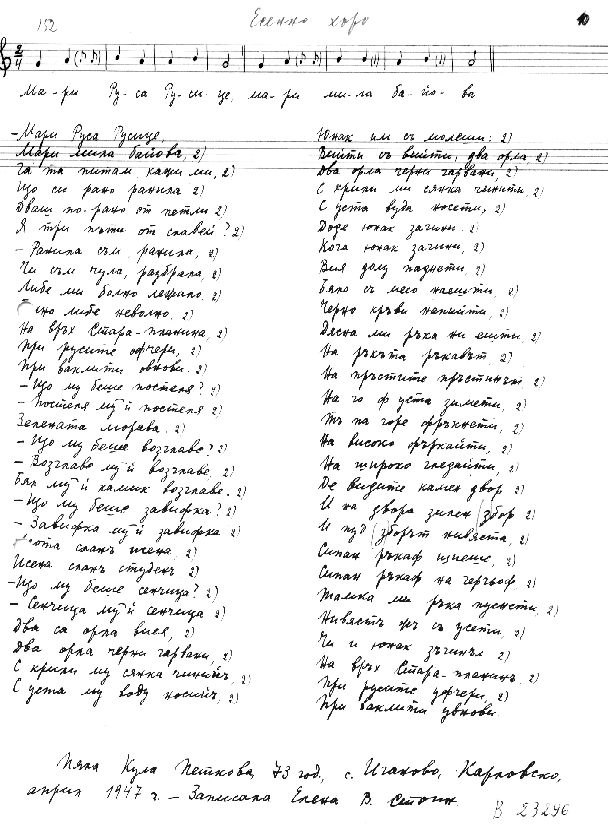 152
Есенно хоро
10
Ма - ри Ру - са Ру - си - це, ма - ри ми - ла ба - йо - ва
- Мари Руса Русице,
Мари мила байова, 2)
Ща та питам кажи ми, 2)
Що си рано ранила 2)
Дваш по-рано от петли 2)
Я три пъти от славей? 2)
- Ранила съм, ранила, 2)
Чи съм чула, разбрала, 2)
Либе ми болно лежало. 2)
либе неволно. 2)
На връх Стара-планина, 2)
При русите офчери, 2)
При ваклити овнови. 2)
- Що му беше постеля? 2)
- Постеля му й постеля 2)
Зелената морава. 2)
- Що му беше возглаве? 2)
- Возглаве му й возглаве, 2)
Бял му й камик возглаве. 2)
- Що му беше завифка? 2)
- Завифка му й завифка 2)
слана 2)
Исена слана студена 2)
- Що му беше сенчица? 2)
- Сенчица му й сенчица 2)
Два са орла вися, 2)
Два орла черни гарвани, 2)
С крили му сянка чинийъ, 2)
С уста му воду носийъ, 2)
Юнак им съ молеши: 2)
Вийти съ вийти, два орла 2)
Два орла черни гарвани, 2)
С крили ми сянка чинити, 2)
С уста вуда носети, 2)
Доде юнак загини. 2)
Кога юнак загини, 2)
Вия долу паднети, 2)
Бяло съ месо наешти, 2)
Черно кръви напийти, 2)
Дясна ми ръка ни ешти 2)
На ръкъта ръкавът 2)
На пръстите пръстинът 2)
На го ф уста зимети, 2)
Тъ на горе фръкнети, 2)
На високо фъркайти, 2)
На широко гледайти, 2)
Де видите камен двор 2)
И на двора зилен збор 2)
И пуд зборът нивяста, 2)
Сипан ръкаф шиеше, 2)
Сипан ръкаф на гергьоф, 2)
Тамка ми ръка пуснети, 2)
Чи и юнак зъгинъл 2)
На връх Стара-планинъ. 2)
При русите уфчери, 2)
При ваклити увнови.
Пяла Кула Петкова, 73 год., с. Иганово, Карловско,
април 1947 г. - Записала Елена В. Стоин
В 23296